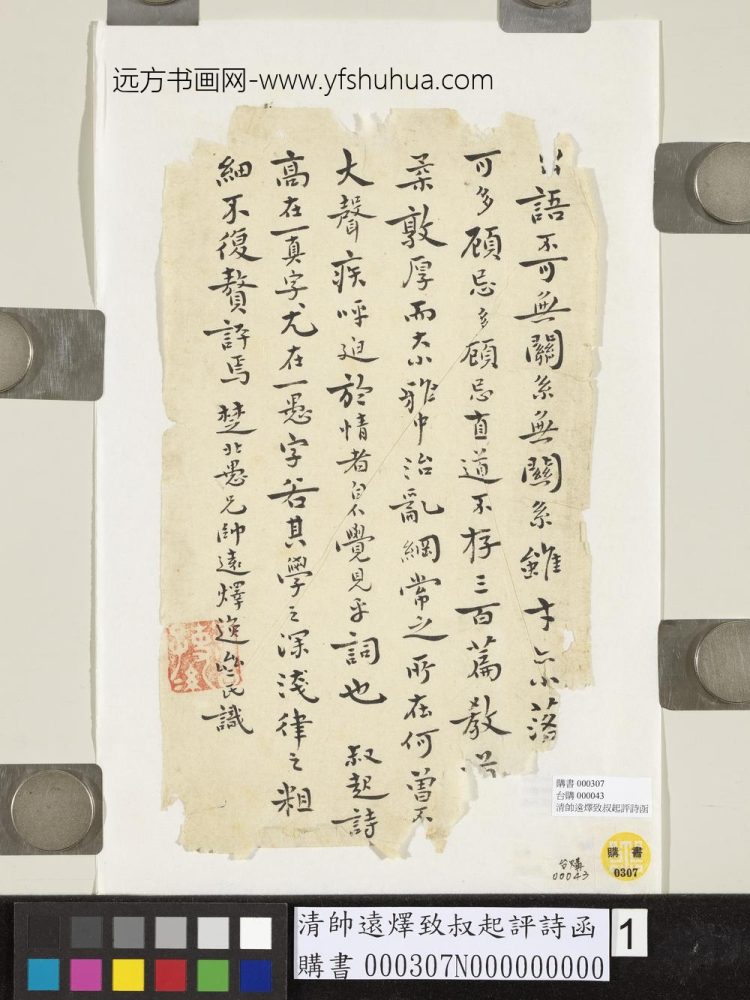 远方书画网-www.yfshuhua.com
語不可無關系無關系雖才亦落
可多顧忌多顧忌直道不存三百篇教
柔敦厚而大小雅中治亂綱常之所在何曾不
大聲疾呼迫於情者自不覺見乎詞也 叔起詩
高在一真字尤在一愚字若其學之深淺律之粗
細不復贅評焉 楚北愚兄帥遠燡逸民識
購書 000307
台購 000043
清帥遠燡致叔起評詩函
購書
0307
台購
00043
清帥遠燡致叔起評詩函
購書 000307N000000000
1